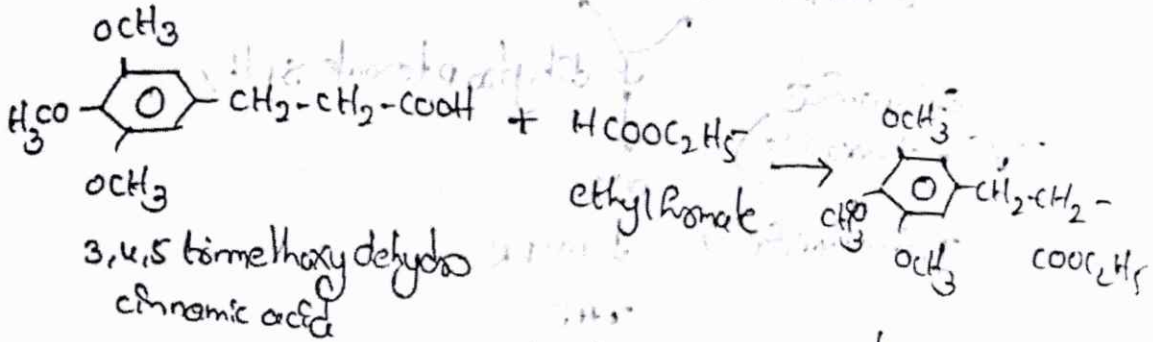 OCH3
H3CO
CH2-CH2-COOH + HCOOC2H5
OCH3
ethyl formate
3,4,5 trimethoxy dehydro
cinnamic acid
OCH3
CH2-CH2-
CH3O
OCH3
COOC2H5